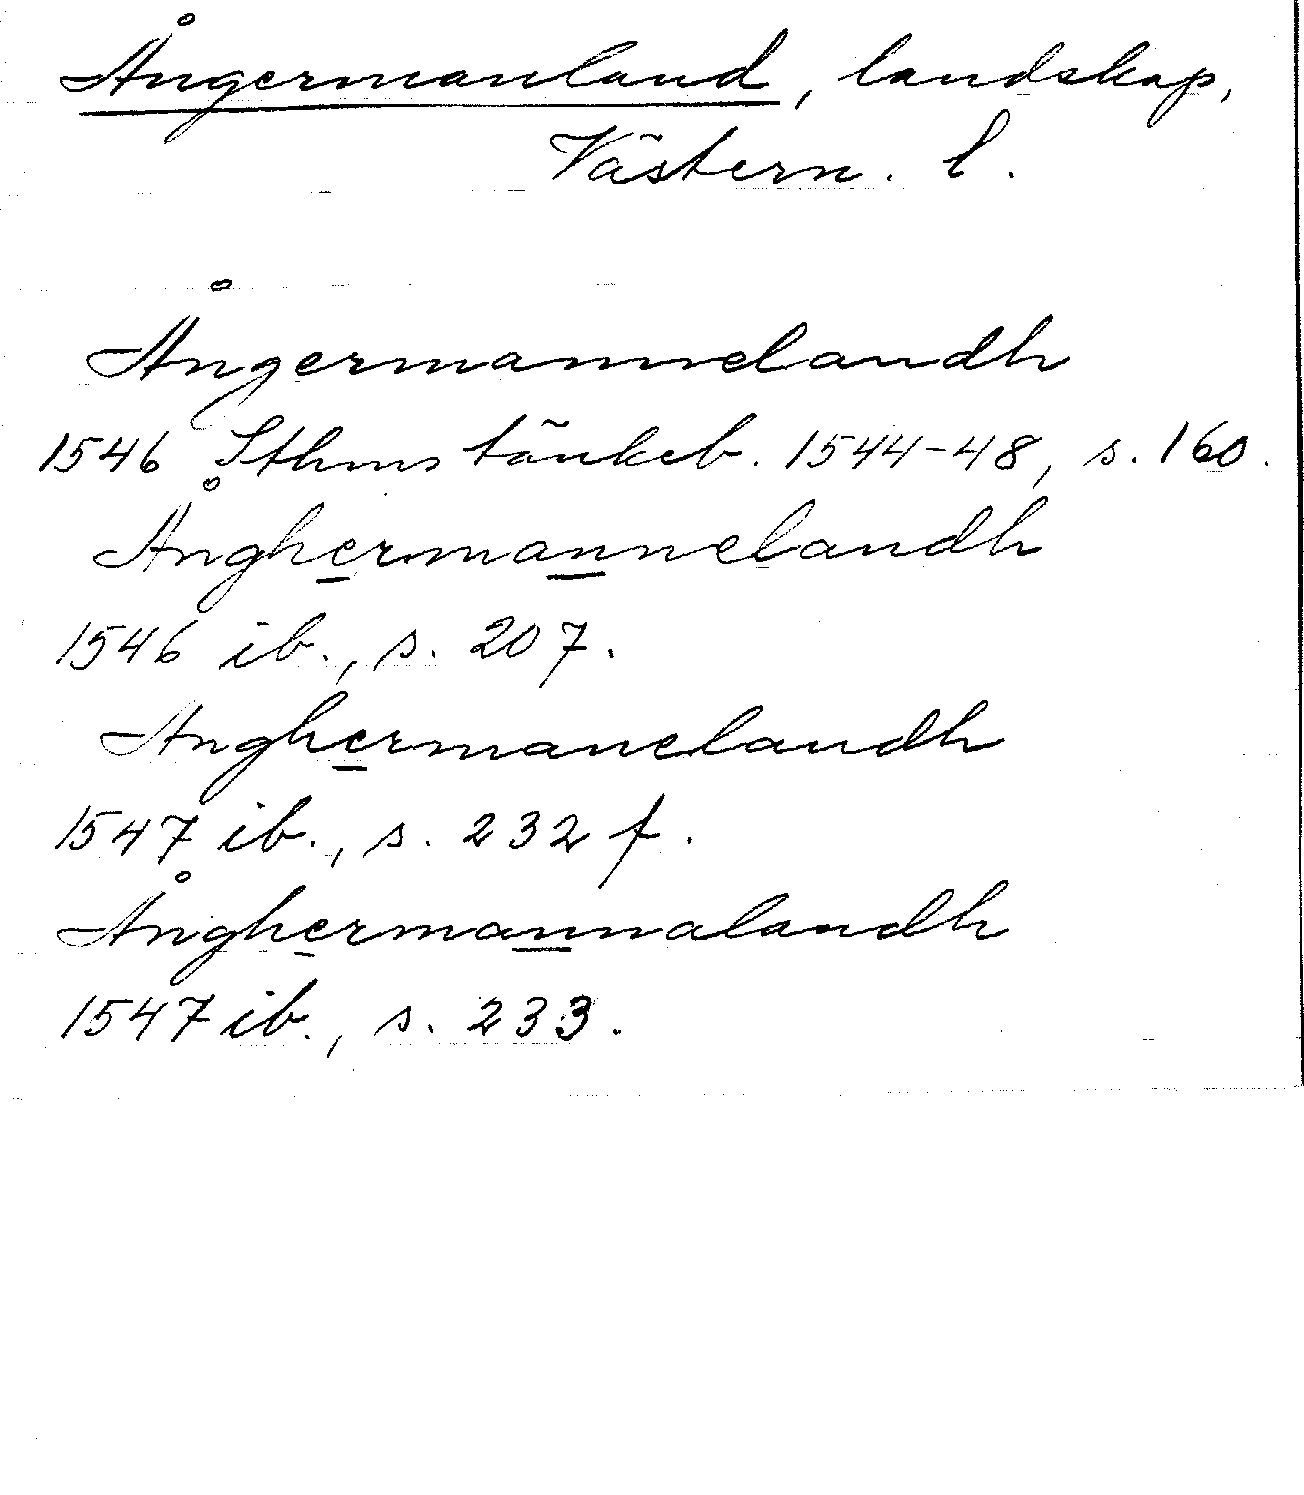 Ångermanland, landskap,
Västern. l.
Ångermannelandh
1546 Sthms tänkeb. 1544-48, s. 160.
Ånghermannelandh
1546 ib., s. 207.
Anghermanelandh
1547 ib., s. 232 f.
Ånghermannalandh
1547 ib., s. 233.